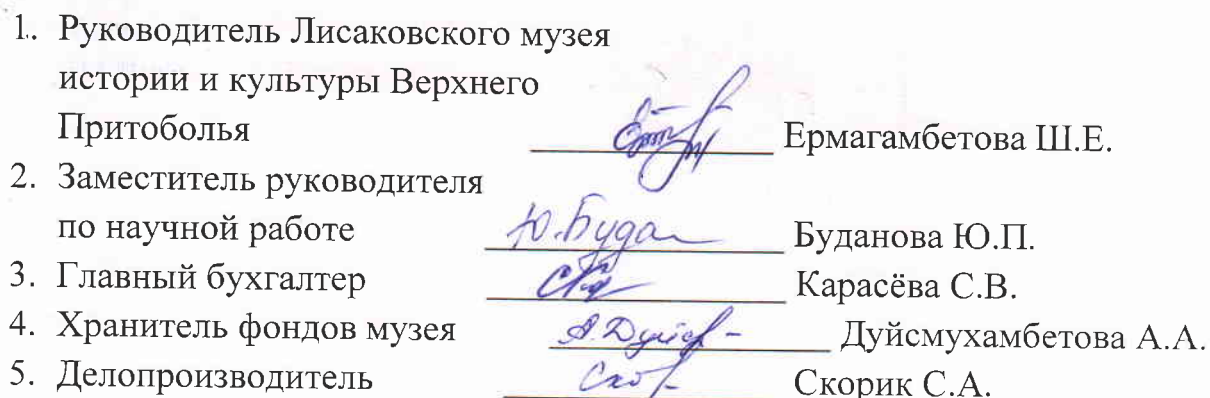 1. Руководитель Лисаковского музея
истории и культуры Верхнего
Притоболья Ермагамбетова Ш.Е.
2. Заместитель руководителя
по научной работе Ю.Будан Буданова Ю.П.
3. Главный бухгалтер Карасёва С.В.
4. Хранитель фондов музея Дуйсмухамбетова А.А.
5. Делопроизводитель Скорик С.А.